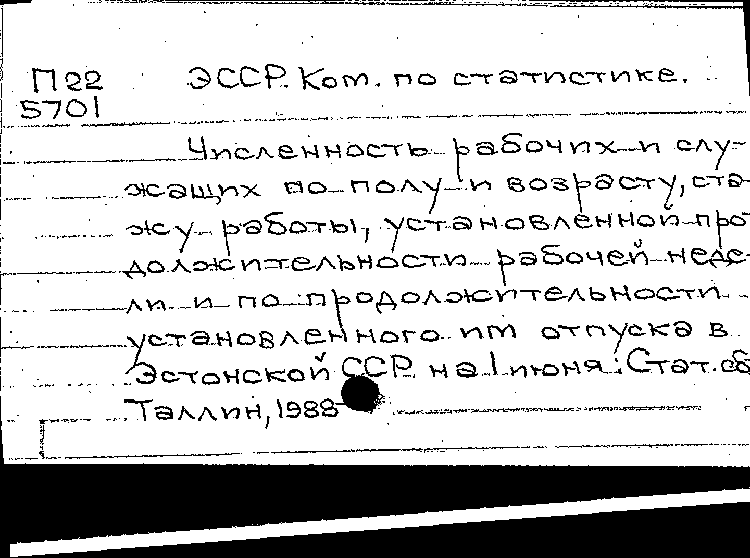 П22 ЭССР. Ком. по статистике.
5701
Численность рабочих и слу-
жащих по полу и возрасту, ста-
жу работы, установленной про-
должительности рабочей неде-
ли и по продолжительности
установленного им отпуска в
Эстонской ССР на 1 июня: Стат. сб
Таллин, 1988-